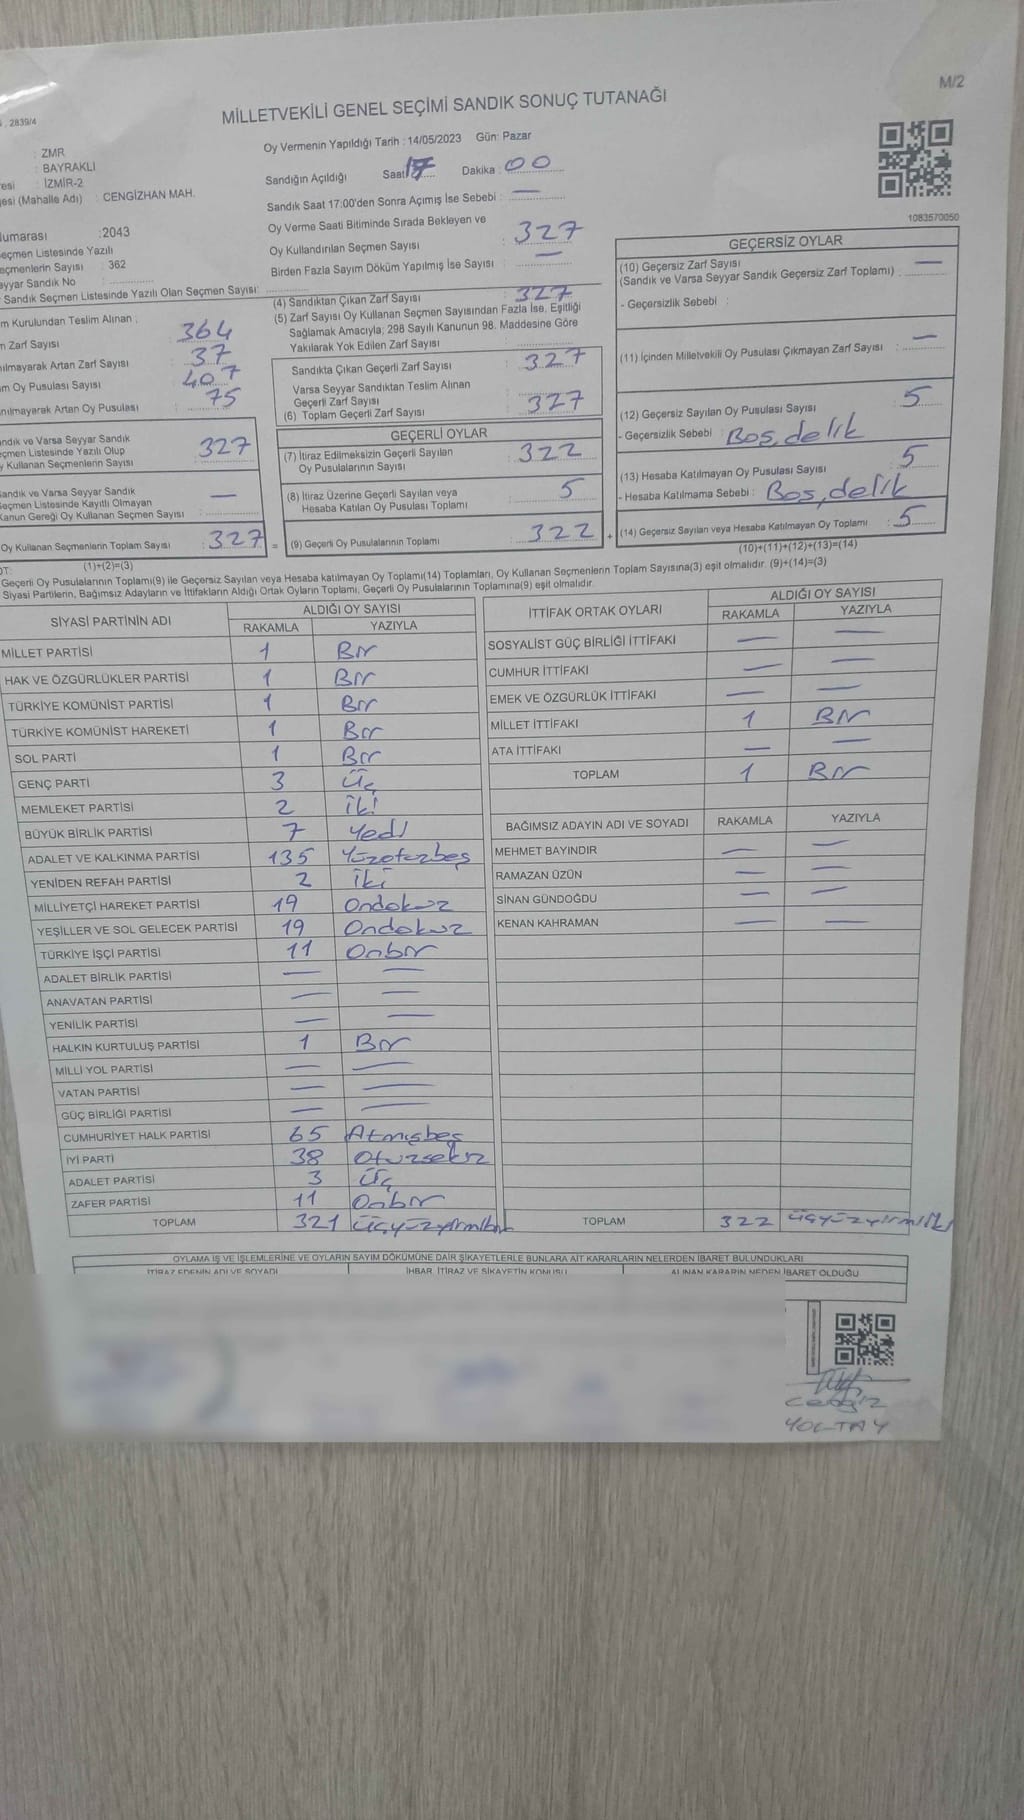 M/2
MİLLETVEKİLİ GENEL SEÇİMİ SANDIK SONUÇ TUTANAĞI
2839/4
: ZMR
: BAYRAKLI
: İZMİR-2
(Mahalle Adı) : CENGİZHAN MAH.
Oy Vermenin Yapıldığı Tarih : 14/05/2023 Gün: Pazar
Sandığın Açıldığı Saat 17 Dakika : 00
Sandık Saat 17:00'den Sonra Açımış İse Sebebi : —
Oy Verme Saati Bitiminde Sırada Bekleyen ve
Oy Kullandırılan Seçmen Sayısı : 327
Birden Fazla Sayım Döküm Yapılmış İse Sayısı : —
1083570050
umarası :2043
eçmen Listesinde Yazılı
eçmenlerin Sayısı : 362
eyyar Sandık No :
Sandık Seçmen Listesinde Yazılı Olan Seçmen Sayısı:
m Kurulundan Teslim Alınan
n Zarf Sayısı : 364
ılmayarak Artan Zarf Sayısı : 37
m Oy Pusulası Sayısı : 407
nılmayarak Artan Oy Pusulası : 75
andık ve Varsa Seyyar Sandık
eçmen Listesinde Yazılı Olup
y Kullanan Seçmenlerin Sayısı : 327
Sandık ve Varsa Seyyar Sandık
Seçmen Listesinde Kayıtlı Olmayan
Kanun Gereği Oy Kullanan Seçmen Sayısı : —
Oy Kullanan Seçmenlerin Toplam Sayısı : 327 =
(1)+(2)=(3)
(4) Sandıktan Çıkan Zarf Sayısı : 327
(5) Zarf Sayısı Oy Kullanan Seçmen Sayısından Fazla İse, Eşitliği
Sağlamak Amacıyla; 298 Sayılı Kanunun 98. Maddesine Göre
Yakılarak Yok Edilen Zarf Sayısı :
Sandıkta Çıkan Geçerli Zarf Sayısı : 327
Varsa Seyyar Sandıktan Teslim Alınan
Geçerli Zarf Sayısı
(6) Toplam Geçerli Zarf Sayısı : 327
GEÇERLİ OYLAR
(7) İtiraz Edilmeksizin Geçerli Sayılan
Oy Pusulalarının Sayısı : 322
(8) İtiraz Üzerine Geçerli Sayılan veya
Hesaba Katılan Oy Pusulası Toplamı : 5
(9) Geçerli Oy Pusulalarının Toplamı : 322 +
GEÇERSİZ OYLAR
(10) Geçersiz Zarf Sayısı
(Sandık ve Varsa Seyyar Sandık Geçersiz Zarf Toplamı) : —
- Geçersizlik Sebebi :
(11) İçinden Milletvekili Oy Pusulası Çıkmayan Zarf Sayısı : —
(12) Geçersiz Sayılan Oy Pusulası Sayısı : 5
- Geçersizlik Sebebi : Boş, delik
(13) Hesaba Katılmayan Oy Pusulası Sayısı : 5
- Hesaba Katılmama Sebebi : Boş, delik
(14) Geçersiz Sayılan veya Hesaba Katılmayan Oy Toplamı : 5
(10)+(11)+(12)+(13)=(14)
OT:
Geçerli Oy Pusulalarının Toplamı(9) ile Geçersiz Sayılan veya Hesaba katılmayan Oy Toplamı(14) Toplamları, Oy Kullanan Seçmenlerin Toplam Sayısına(3) eşit olmalıdır. (9)+(14)=(3)
Siyasi Partilerin, Bağımsız Adayların ve İttifakların Aldığı Ortak Oyların Toplamı, Geçerli Oy Pusulalarının Toplamına(9) eşit olmalıdır.
SİYASİ PARTİNİN ADI ALDIĞI OY SAYISI
RAKAMLA YAZIYLA
MİLLET PARTİSİ 1 Bir
HAK VE ÖZGÜRLÜKLER PARTİSİ 1 Bir
TÜRKİYE KOMÜNİST PARTİSİ 1 Bir
TÜRKİYE KOMÜNİST HAREKETİ 1 Bir
SOL PARTİ 1 Bir
GENÇ PARTİ 3 Üç
MEMLEKET PARTİSİ 2 İki
BÜYÜK BİRLİK PARTİSİ 7 Yedi
ADALET VE KALKINMA PARTİSİ 135 Yüzotuzbeş
YENİDEN REFAH PARTİSİ 2 İki
MİLLİYETÇİ HAREKET PARTİSİ 19 Ondokuz
YEŞİLLER VE SOL GELECEK PARTİSİ 19 Ondokuz
TÜRKİYE İŞÇİ PARTİSİ 11 Onbir
ADALET BİRLİK PARTİSİ — —
ANAVATAN PARTİSİ — —
YENİLİK PARTİSİ — —
HALKIN KURTULUŞ PARTİSİ 1 Bir
MİLLİ YOL PARTİSİ — —
VATAN PARTİSİ — —
GÜÇ BİRLİĞİ PARTİSİ — —
CUMHURİYET HALK PARTİSİ 65 Atmışbeş
İYİ PARTİ 38 Otuzsekiz
ADALET PARTİSİ 3 Üç
ZAFER PARTİSİ 11 Onbir
TOPLAM 321 Üçyüzyirmibir
İTTİFAK ORTAK OYLARI ALDIĞI OY SAYISI
RAKAMLA YAZIYLA
SOSYALİST GÜÇ BİRLİĞİ İTTİFAKI — —
CUMHUR İTTİFAKI — —
EMEK VE ÖZGÜRLÜK İTTİFAKI — —
MİLLET İTTİFAKI 1 Bir
ATA İTTİFAKI — —
TOPLAM 1 Bir
BAĞIMSIZ ADAYIN ADI VE SOYADI RAKAMLA YAZIYLA
MEHMET BAYINDIR — —
RAMAZAN ÜZÜN — —
SİNAN GÜNDOĞDU — —
KENAN KAHRAMAN — —
TOPLAM 322 Üçyüzyirmiiki
OYLAMA İŞ VE İŞLEMLERİNE VE OYLARIN SAYIM DÖKÜMÜNE DAİR ŞİKAYETLERLE BUNLARA AİT KARARLARIN NELERDEN İBARET BULUNDUKLARI
İTİRAZ EDENİN ADI VE SOYADI İHBAR, İTİRAZ VE ŞİKAYETİN KONUSU ALINAN KARARIN NEDEN İBARET OLDUĞU
Cengiz
YOLTAY